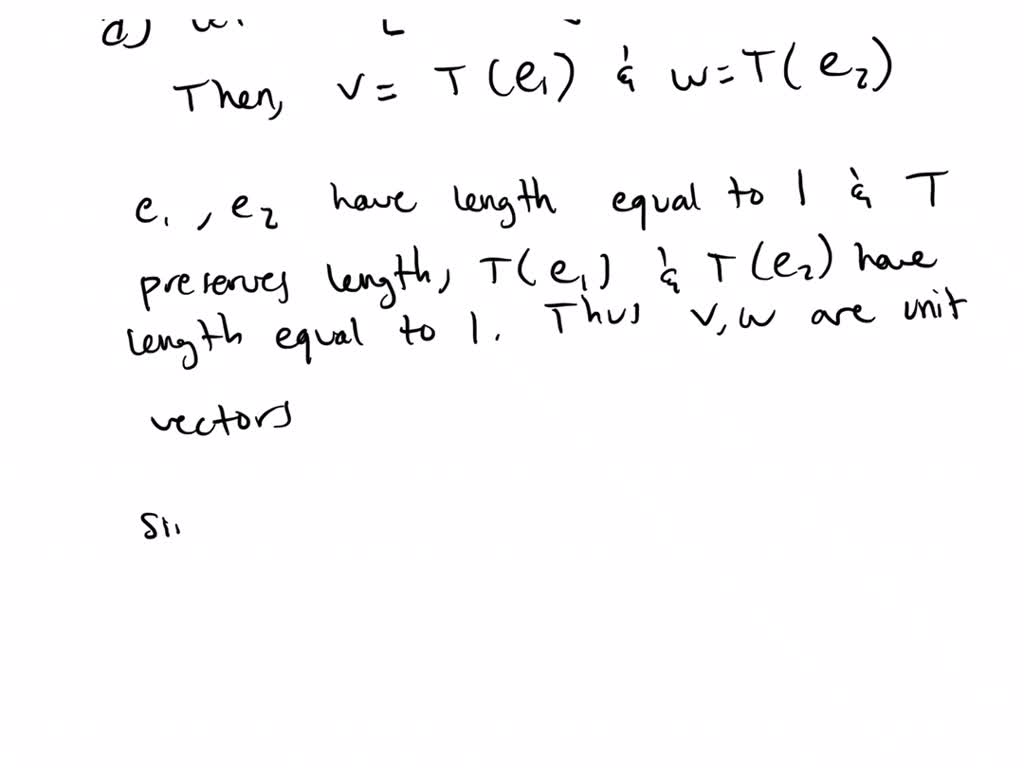 a)
Then, v = T(e₁) & w = T(e₂)
e₁, e₂ have length equal to 1 & T
preserves length, T(e₁) & T(e₂) have
length equal to 1. Thus v, w are unit
vectors